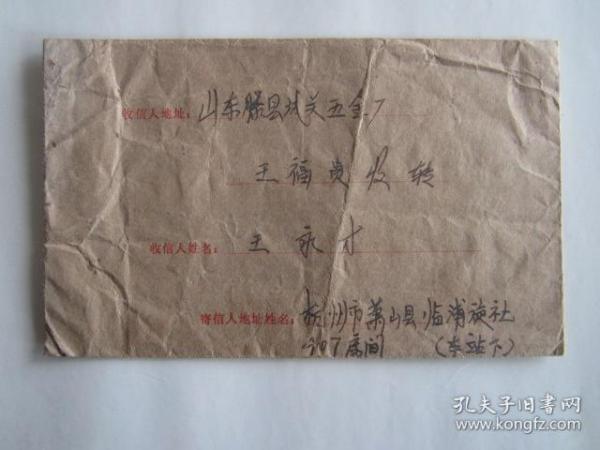 收信人地址：山东滕县城关五金厂
王福贵收转
收信人姓名：王永才
寄信人地址姓名：杭州市萧山县临浦旅社
407房间（车站下）
孔夫子旧书网
www.kongfz.com